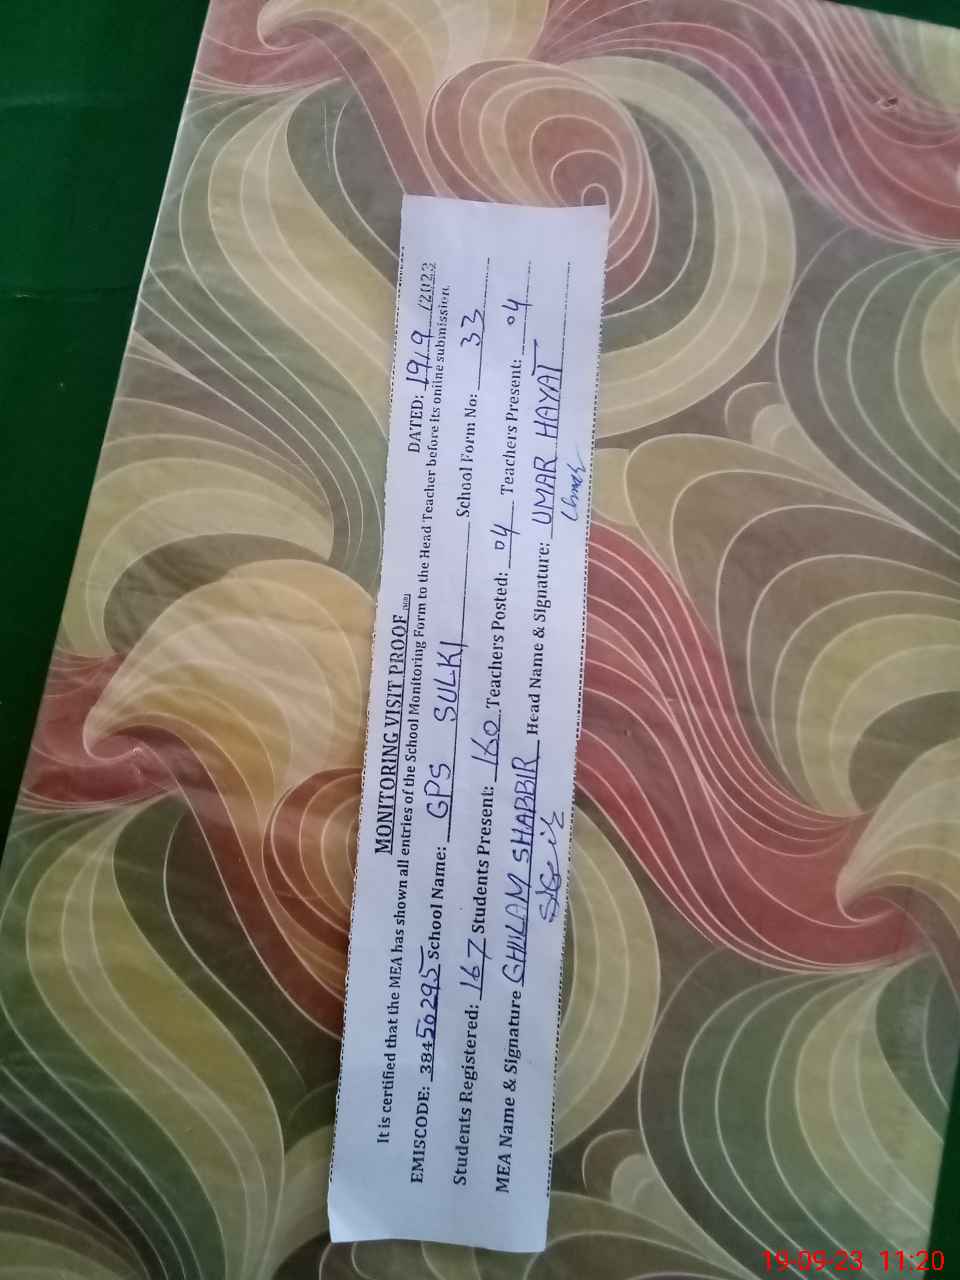 MONITORING VISIT PROOF
DATED: 19/9/2023
It is certified that the MEA has shown all entries of the School Monitoring Form to the Head Teacher before its online submission.
EMISCODE: 38450295 School Name: GPS SULKI School Form No: 33
Students Registered: 167 Students Present: 160 Teachers Posted: 04 Teachers Present: 04
MEA Name & Signature GHULAM SHABBIR Head Name & Signature: UMAR HAYAT
19-09-23 11:20